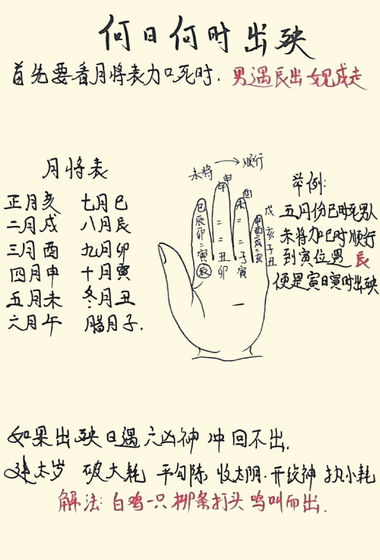 何日何时出殃
首先要看月将表力口死时. 男遇辰出 女见戌走
月将表
正月亥 七月巳
二月戌 八月辰
三月酉 九月卯
四月申 十月寅
五月未 冬月丑
六月午 腊月子.
未将 → 顺行
举例:
五月份巳时死男人
未将加巳时顺行
到寅位男辰
便是寅日寅时出殃
如果出殃日遇六凶神 冲回不出.
建太岁 破大耗 平勾陈 收太阴. 开绞神 执小耗
解法: 白鸡一只 柳条打头 鸣叫而出.